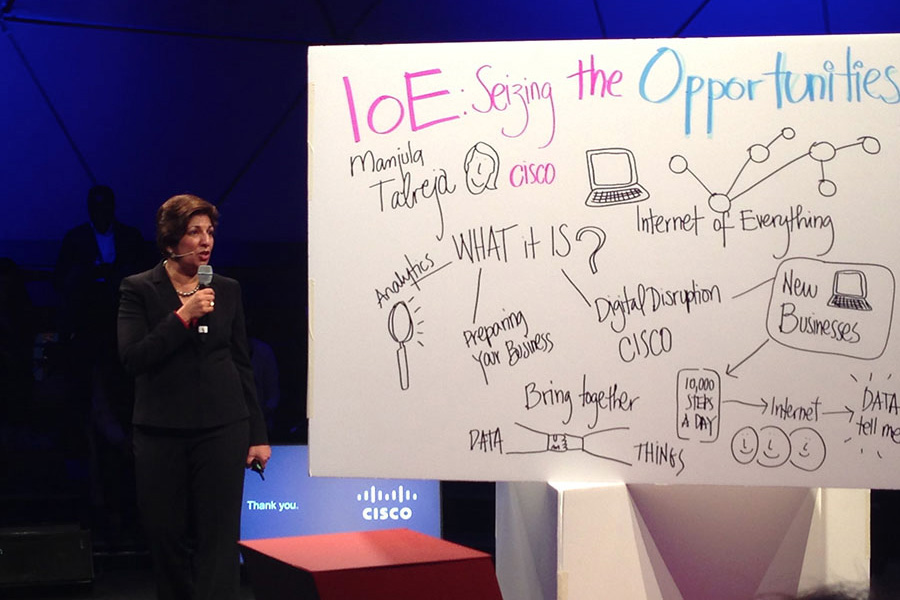 IoE: Seizing the Opportunities
Manjula
Talreja
CISCO
Internet of Everything
WHAT it IS?
Analytics
Preparing
Your Business
Digital Disruption
CISCO
New
Businesses
Bring together
DATA
THINGS
10,000
STEPS
A DAY
Internet
DATA
tell me
Thank you.
CISCO